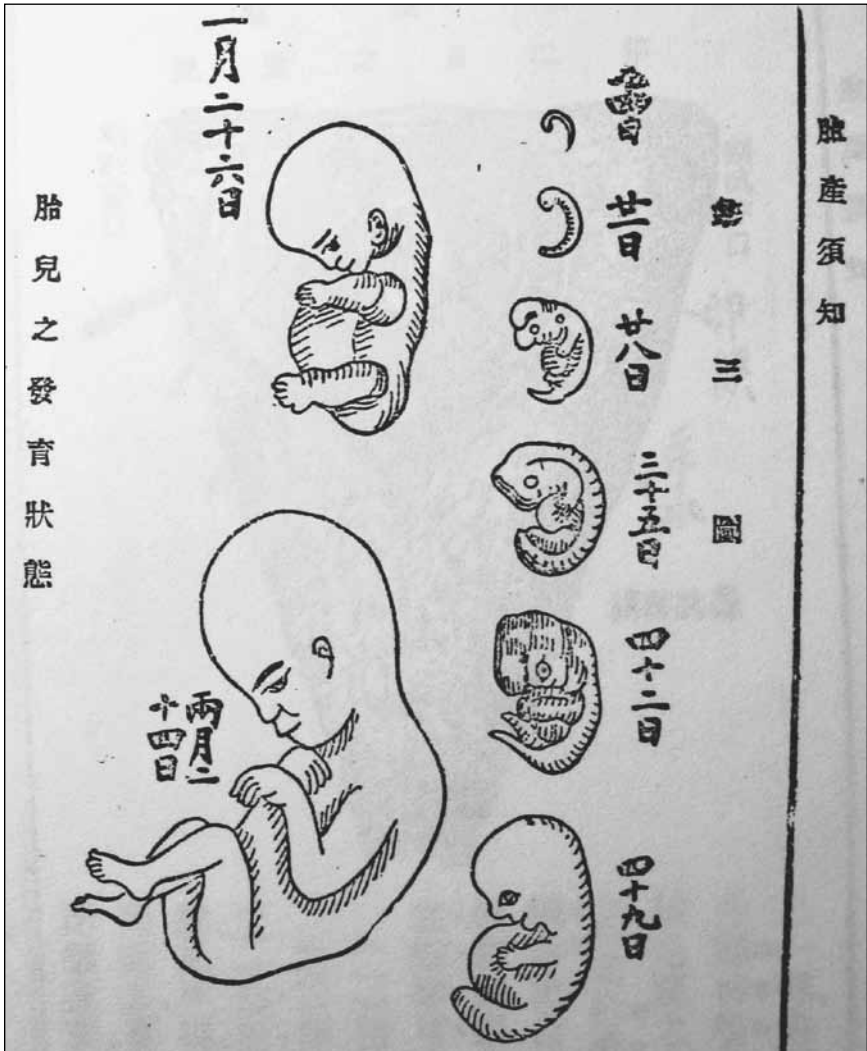 胎產須知
第三圖
廿一日
廿八日
三十五日
四十二日
四十九日
一月二十六日
兩月二
十四日
胎兒之發育狀態